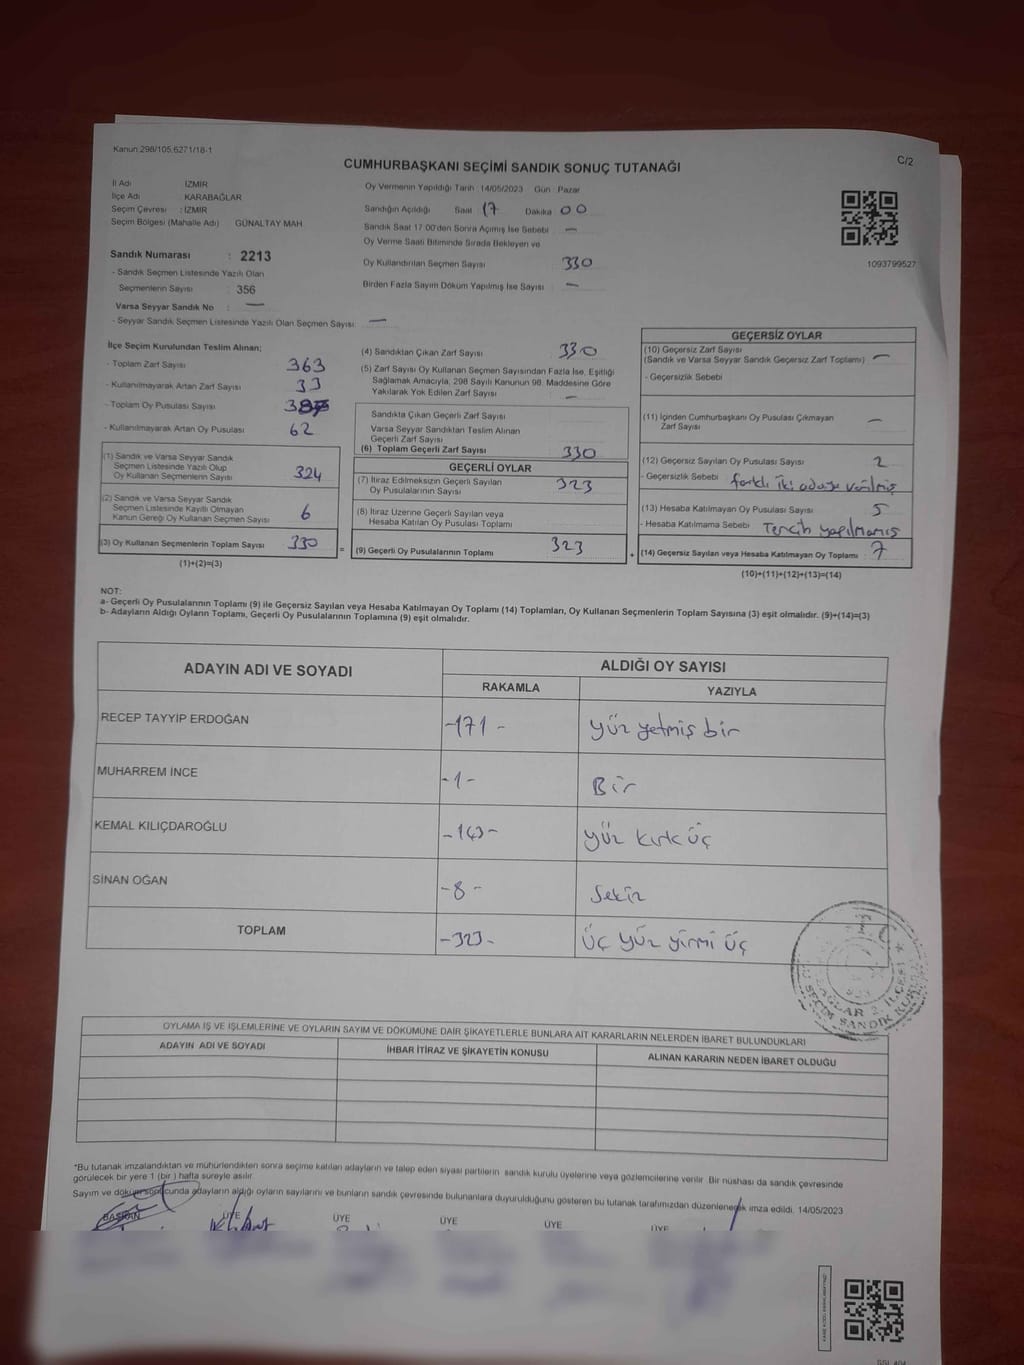 Kanun 298/105,6271/18-1
C/2
CUMHURBAŞKANI SEÇİMİ SANDIK SONUÇ TUTANAĞI
İl Adı İZMİR
İlçe Adı KARABAĞLAR
Seçim Çevresi : İZMİR
Seçim Bölgesi (Mahalle Adı) GÜNALTAY MAH
Oy Vermenin Yapıldığı Tarih : 14/05/2023 Gün : Pazar
Sandığın Açıldığı Saat 17 Dakika 00
Sandık Saat 17.00'den Sonra Açılmış İse Sebebi —
Oy Verme Saati Bitiminde Sırada Bekleyen ve
Oy Kullandırılan Seçmen Sayısı 330
Birden Fazla Sayım Döküm Yapılmış İse Sayısı —
1093799527
Sandık Numarası : 2213
- Sandık Seçmen Listesinde Yazılı Olan
Seçmenlerin Sayısı : 356
Varsa Seyyar Sandık No : —
- Seyyar Sandık Seçmen Listesinde Yazılı Olan Seçmen Sayısı —
İlçe Seçim Kurulundan Teslim Alınan;
- Toplam Zarf Sayısı 363
- Kullanılmayarak Artan Zarf Sayısı 33
- Toplam Oy Pusulası Sayısı
- Kullanılmayarak Artan Oy Pusulası 62
(1) Sandık ve Varsa Seyyar Sandık
Seçmen Listesinde Yazılı Olup
Oy Kullanan Seçmenlerin Sayısı 324
(2) Sandık ve Varsa Seyyar Sandık
Seçmen Listesinde Kayıtlı Olmayan
Kanun Gereği Oy Kullanan Seçmen Sayısı 6
(3) Oy Kullanan Seçmenlerin Toplam Sayısı 330
(1)+(2)=(3)
(4) Sandıktan Çıkan Zarf Sayısı 330
(5) Zarf Sayısı Oy Kullanan Seçmen Sayısından Fazla İse, Eşitliği
Sağlamak Amacıyla, 298 Sayılı Kanunun 98. Maddesine Göre
Yakılarak Yok Edilen Zarf Sayısı —
Sandıkta Çıkan Geçerli Zarf Sayısı
Varsa Seyyar Sandıktan Teslim Alınan
Geçerli Zarf Sayısı
(6) Toplam Geçerli Zarf Sayısı 330
GEÇERLİ OYLAR
(7) İtiraz Edilmeksizin Geçerli Sayılan
Oy Pusulalarının Sayısı 323
(8) İtiraz Üzerine Geçerli Sayılan veya
Hesaba Katılan Oy Pusulası Toplamı
= (9) Geçerli Oy Pusulalarının Toplamı 323 +
GEÇERSİZ OYLAR
(10) Geçersiz Zarf Sayısı
(Sandık ve Varsa Seyyar Sandık Geçersiz Zarf Toplamı) —
- Geçersizlik Sebebi
(11) İçinden Cumhurbaşkanı Oy Pusulası Çıkmayan
Zarf Sayısı —
(12) Geçersiz Sayılan Oy Pusulası Sayısı 2
- Geçersizlik Sebebi farklı iki adaya verilmiş
(13) Hesaba Katılmayan Oy Pusulası Sayısı 5
- Hesaba Katılmama Sebebi Tercih yapılmamış
(14) Geçersiz Sayılan veya Hesaba Katılmayan Oy Toplamı 7
(10)+(11)+(12)+(13)=(14)
NOT:
a- Geçerli Oy Pusulalarının Toplamı (9) ile Geçersiz Sayılan veya Hesaba Katılmayan Oy Toplamı (14) Toplamları, Oy Kullanan Seçmenlerin Toplam Sayısına (3) eşit olmalıdır. (9)+(14)=(3)
b- Adayların Aldığı Oyların Toplamı, Geçerli Oy Pusulalarının Toplamına (9) eşit olmalıdır.
ADAYIN ADI VE SOYADI ALDIĞI OY SAYISI
RAKAMLA YAZIYLA
RECEP TAYYİP ERDOĞAN -171- yüz yetmiş bir
MUHARREM İNCE -1- Bir
KEMAL KILIÇDAROĞLU -143- yüz kırk üç
SİNAN OĞAN -8- sekiz
TOPLAM -323- üç yüz yirmi üç
OYLAMA İŞ VE İŞLEMLERİNE VE OYLARIN SAYIM VE DÖKÜMÜNE DAİR ŞİKAYETLERLE BUNLARA AİT KARARLARIN NELERDEN İBARET BULUNDUKLARI
ADAYIN ADI VE SOYADI İHBAR İTİRAZ VE ŞİKAYETİN KONUSU ALINAN KARARIN NEDEN İBARET OLDUĞU
*Bu tutanak imzalandıktan ve mühürlendikten sonra seçime katılan adayların ve talep eden siyasi partilerin sandık kurulu üyelerine veya gözlemcilerine verilir. Bir nüshası da sandık çevresinde
görülecek bir yere 1 (bir) hafta süreyle asılır.
Sayım ve döküm sonucunda adayların aldığı oyların sayılarını ve bunların sandık çevresinde bulunanlara duyurulduğunu gösteren bu tutanak tarafımızdan düzenlenerek imza edildi. 14/05/2023
BAŞKAN ÜYE ÜYE ÜYE ÜYE ÜYE